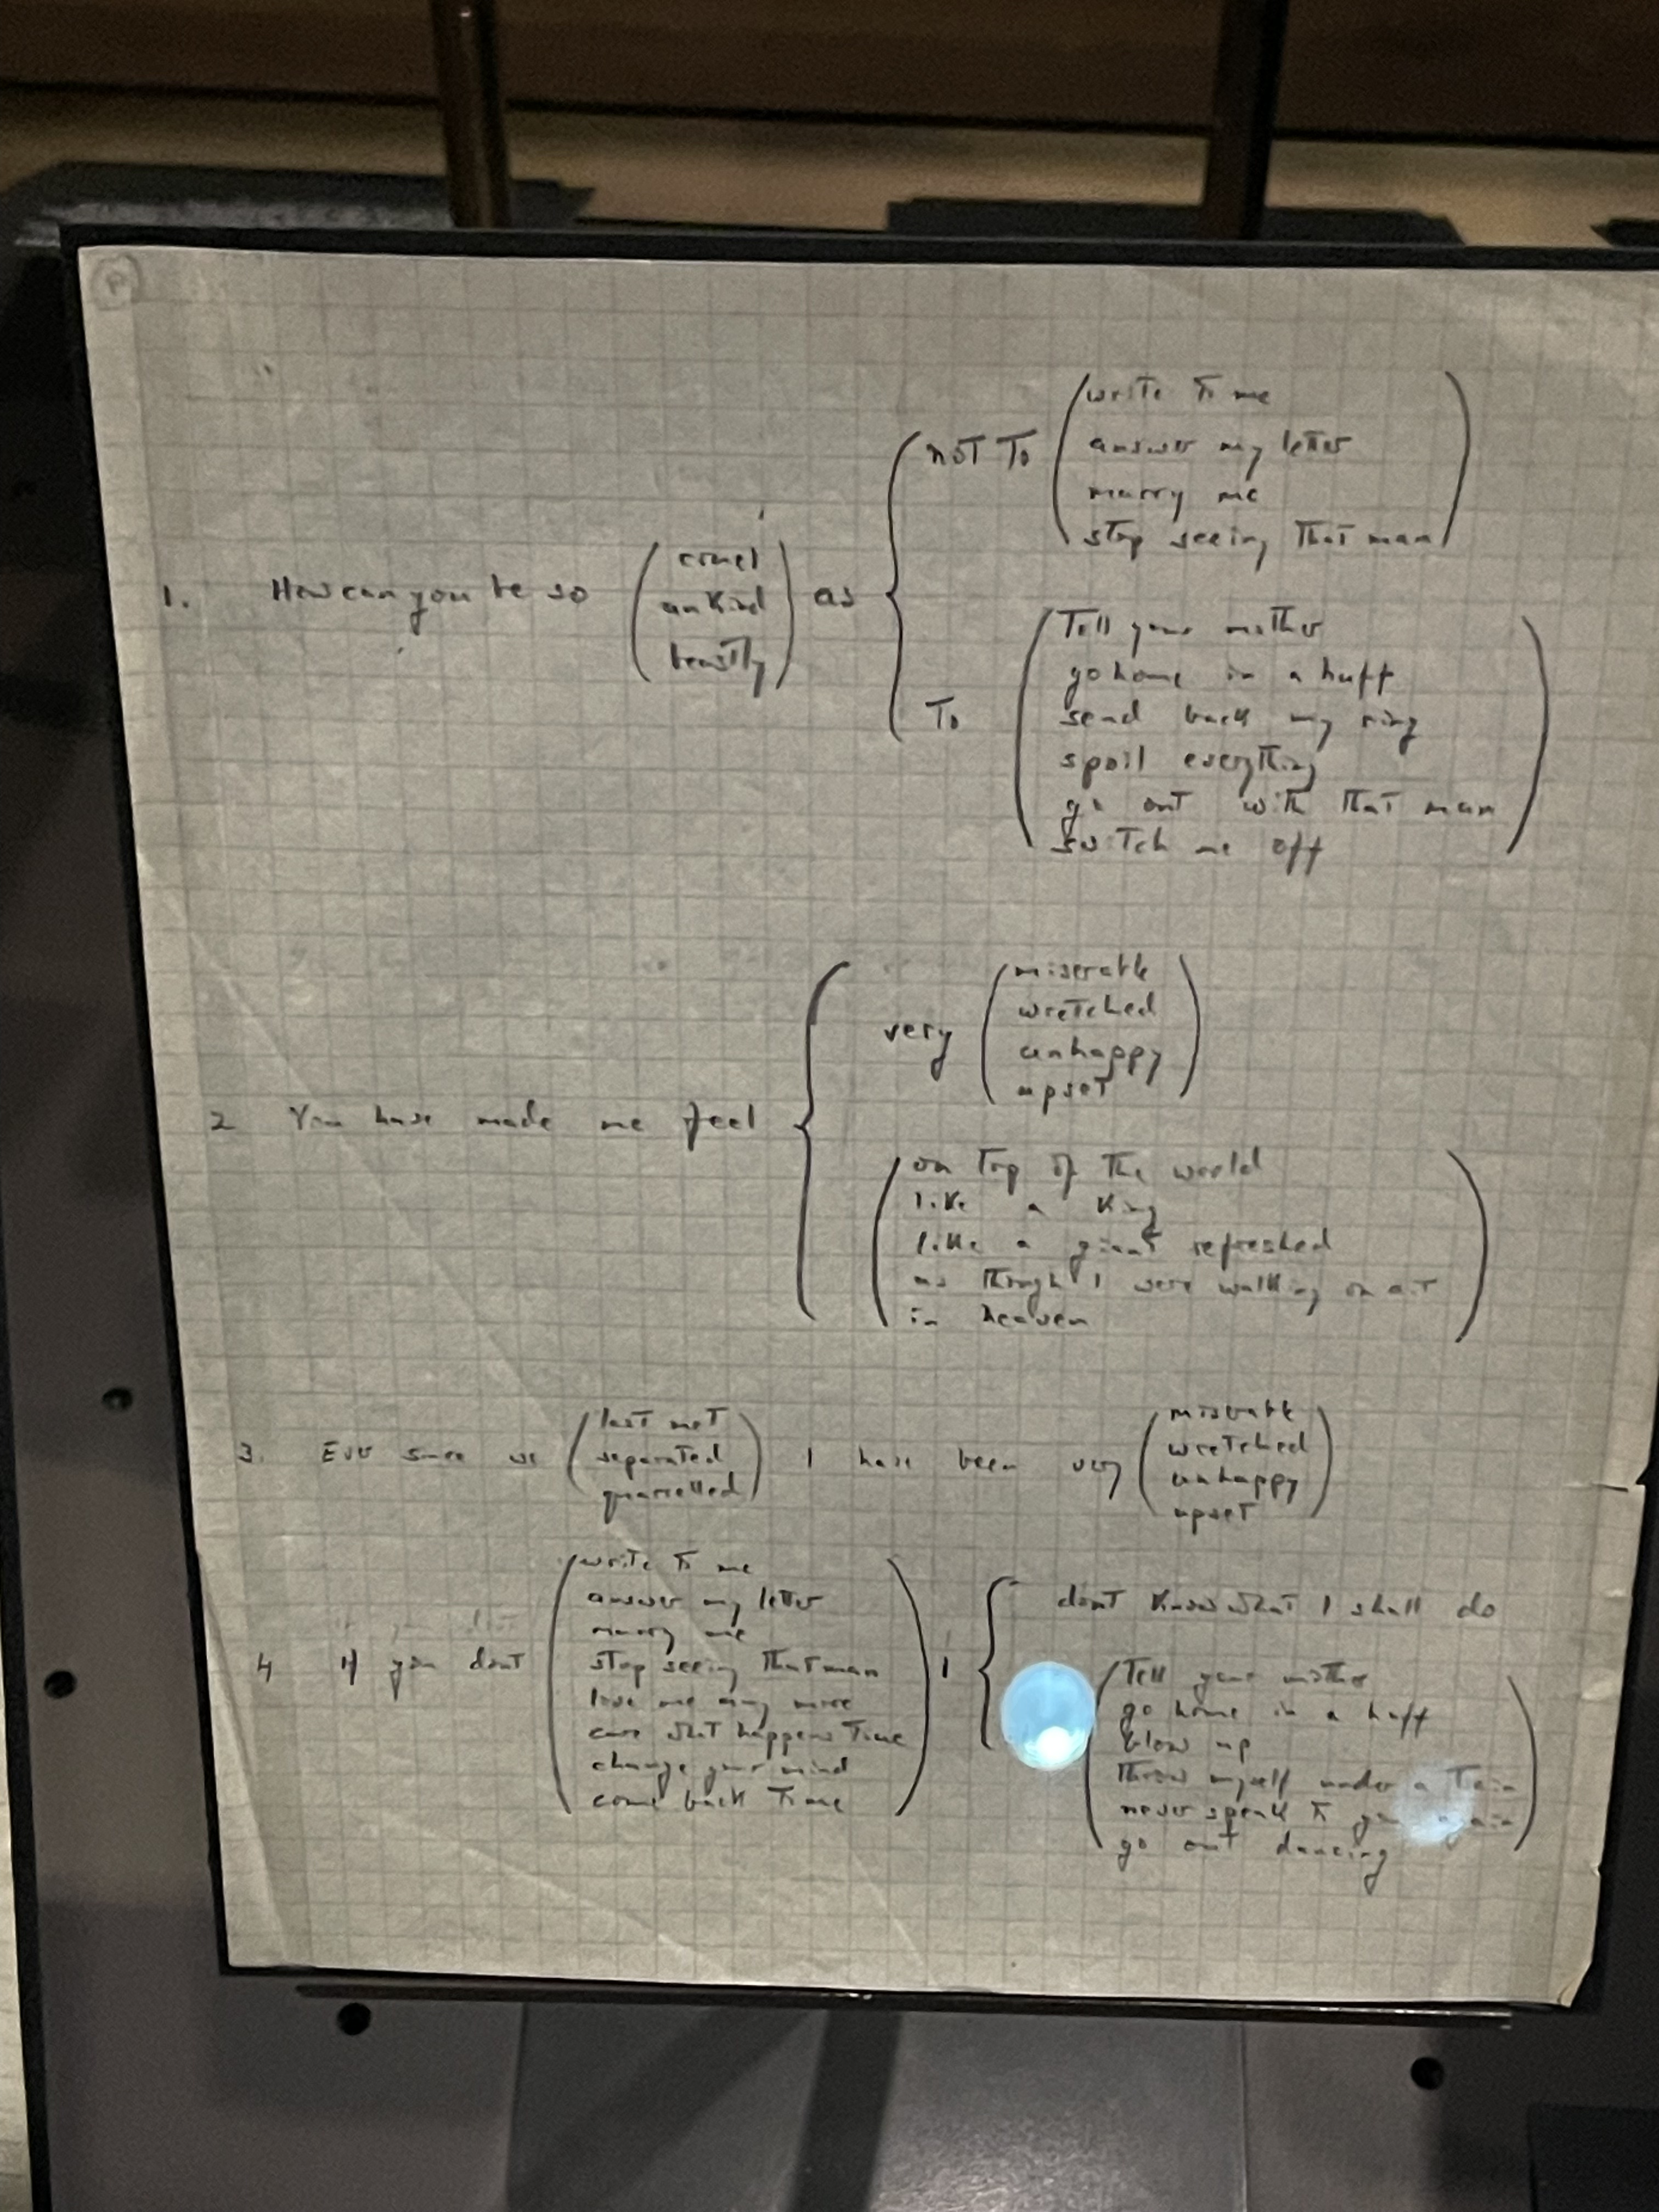 1. How can you be so
cruel
unkind
beastly
as
not To
write To me
answer my letter
marry me
stop seeing That man
To
Tell your mother
go home in a huff
send back my ring
spoil everything
go out with That man
switch me off
2 You have made me feel
very
miserable
wretched
unhappy
upset
on Top of The world
like a King
like a giant refreshed
as Though I were walking on air
in heaven
3. Ever since we
last met
separated
quarrelled
I have been very
miserable
wretched
unhappy
upset
4 If you dont
write To me
answer my letter
marry me
stop seeing That man
love me any more
care what happens To me
change your mind
come back To me
I
dont Know what I shall do
Tell your mother
go home in a huff
blow up
Throw myself under a Train
never speak To you again
go out dancing